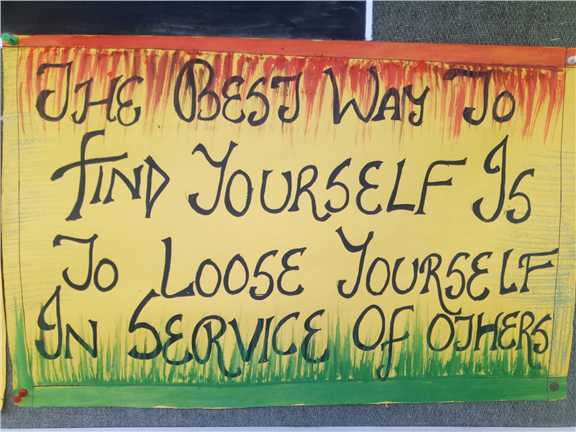 The Best Way To
Find Yourself Is
To Loose Yourself
In Service Of Others